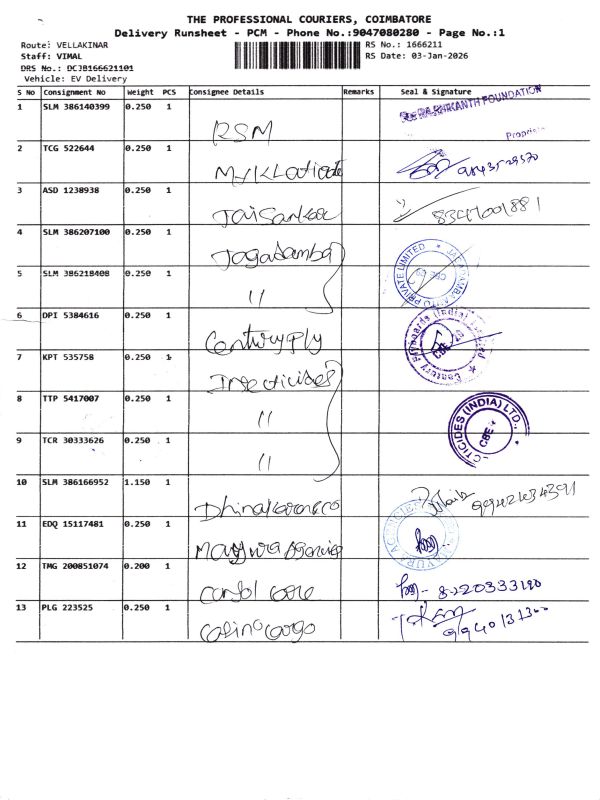 THE PROFESSIONAL COURIERS, COIMBATORE
Delivery Runsheet - PCM - Phone No.:9047080280 - Page No.:1
Route: VELLAKINAR
RS No.: 1666211
Staff: VIMAL
RS Date: 03-Jan-2026
DRS No.: DCJB166621101
Vehicle: EV Delivery
S No Consignment No Weight PCS Consignee Details Remarks Seal & Signature
1 SLM 386140399 0.250 1 RSM FOUNDATION
2 TCG 522644 0.250 1
3 ASD 1238938 0.250 1 Jaisankar
4 SLM 386207100 0.250 1 Jagadamba
5 SLM 386218408 0.250 1 " PRIVATE LIMITED
6 DPI 5384616 0.250 1 Centuryply Century Plyboards (India) Limited CBE
7 KPT 535758 0.250 1 Insecticides
8 TTP 5417007 0.250 1 "
9 TCR 30333626 0.250 1 " CTICIDES (INDIA) LTD., CBE
10 SLM 386166952 1.150 1
11 EDQ 15117481 0.250 1
12 TMG 200851074 0.200 1 8220333190
13 PLG 223525 0.250 1